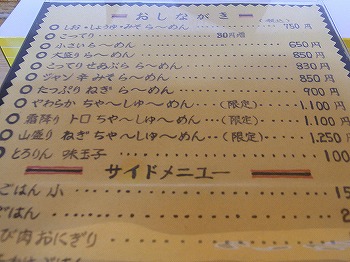 おしながき (税込)
しお・しょうゆ・みそ ら〜めん‥‥ 750円
こってり‥‥‥‥ 80円増
小さい ら〜めん‥‥‥‥ 650円
大盛り ら〜めん‥‥‥‥ 850円
こってり せあぶら ら〜めん‥‥ 830円
ジャン辛 みそ ら〜めん‥‥‥ 850円
たっぷり ねぎ ら〜めん‥‥‥ 900円
やわらか ちゃ〜しゅ〜めん‥(限定)‥ 1,100円
霜降り トロ ちゃ〜しゅ〜めん‥(限定)‥ 1,100円
山盛り ねぎ ちゃ〜しゅ〜めん‥(限定)‥ 1,250円
とろりん 味玉子‥‥‥‥‥‥ 100
サイドメニュー
ごはん 小‥‥‥‥‥‥ 15
ごはん‥‥‥‥‥‥ 2
び肉おにぎり‥‥‥‥